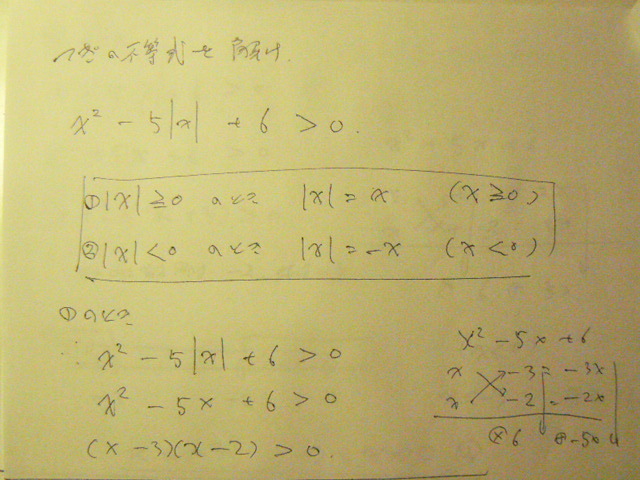 つぎの不等式を解け.
x² - 5|x| + 6 > 0.
①|x| ≧ 0 のとき |x| = x (x ≧ 0)
②|x| < 0 のとき |x| = -x (x < 0)
①のとき
∴ x² - 5|x| + 6 > 0
x² - 5x + 6 > 0
(x - 3)(x - 2) > 0.
x² - 5x + 6
x -3 = -3x
x -2 = -2x
⊗ 6 ⊕ -5x